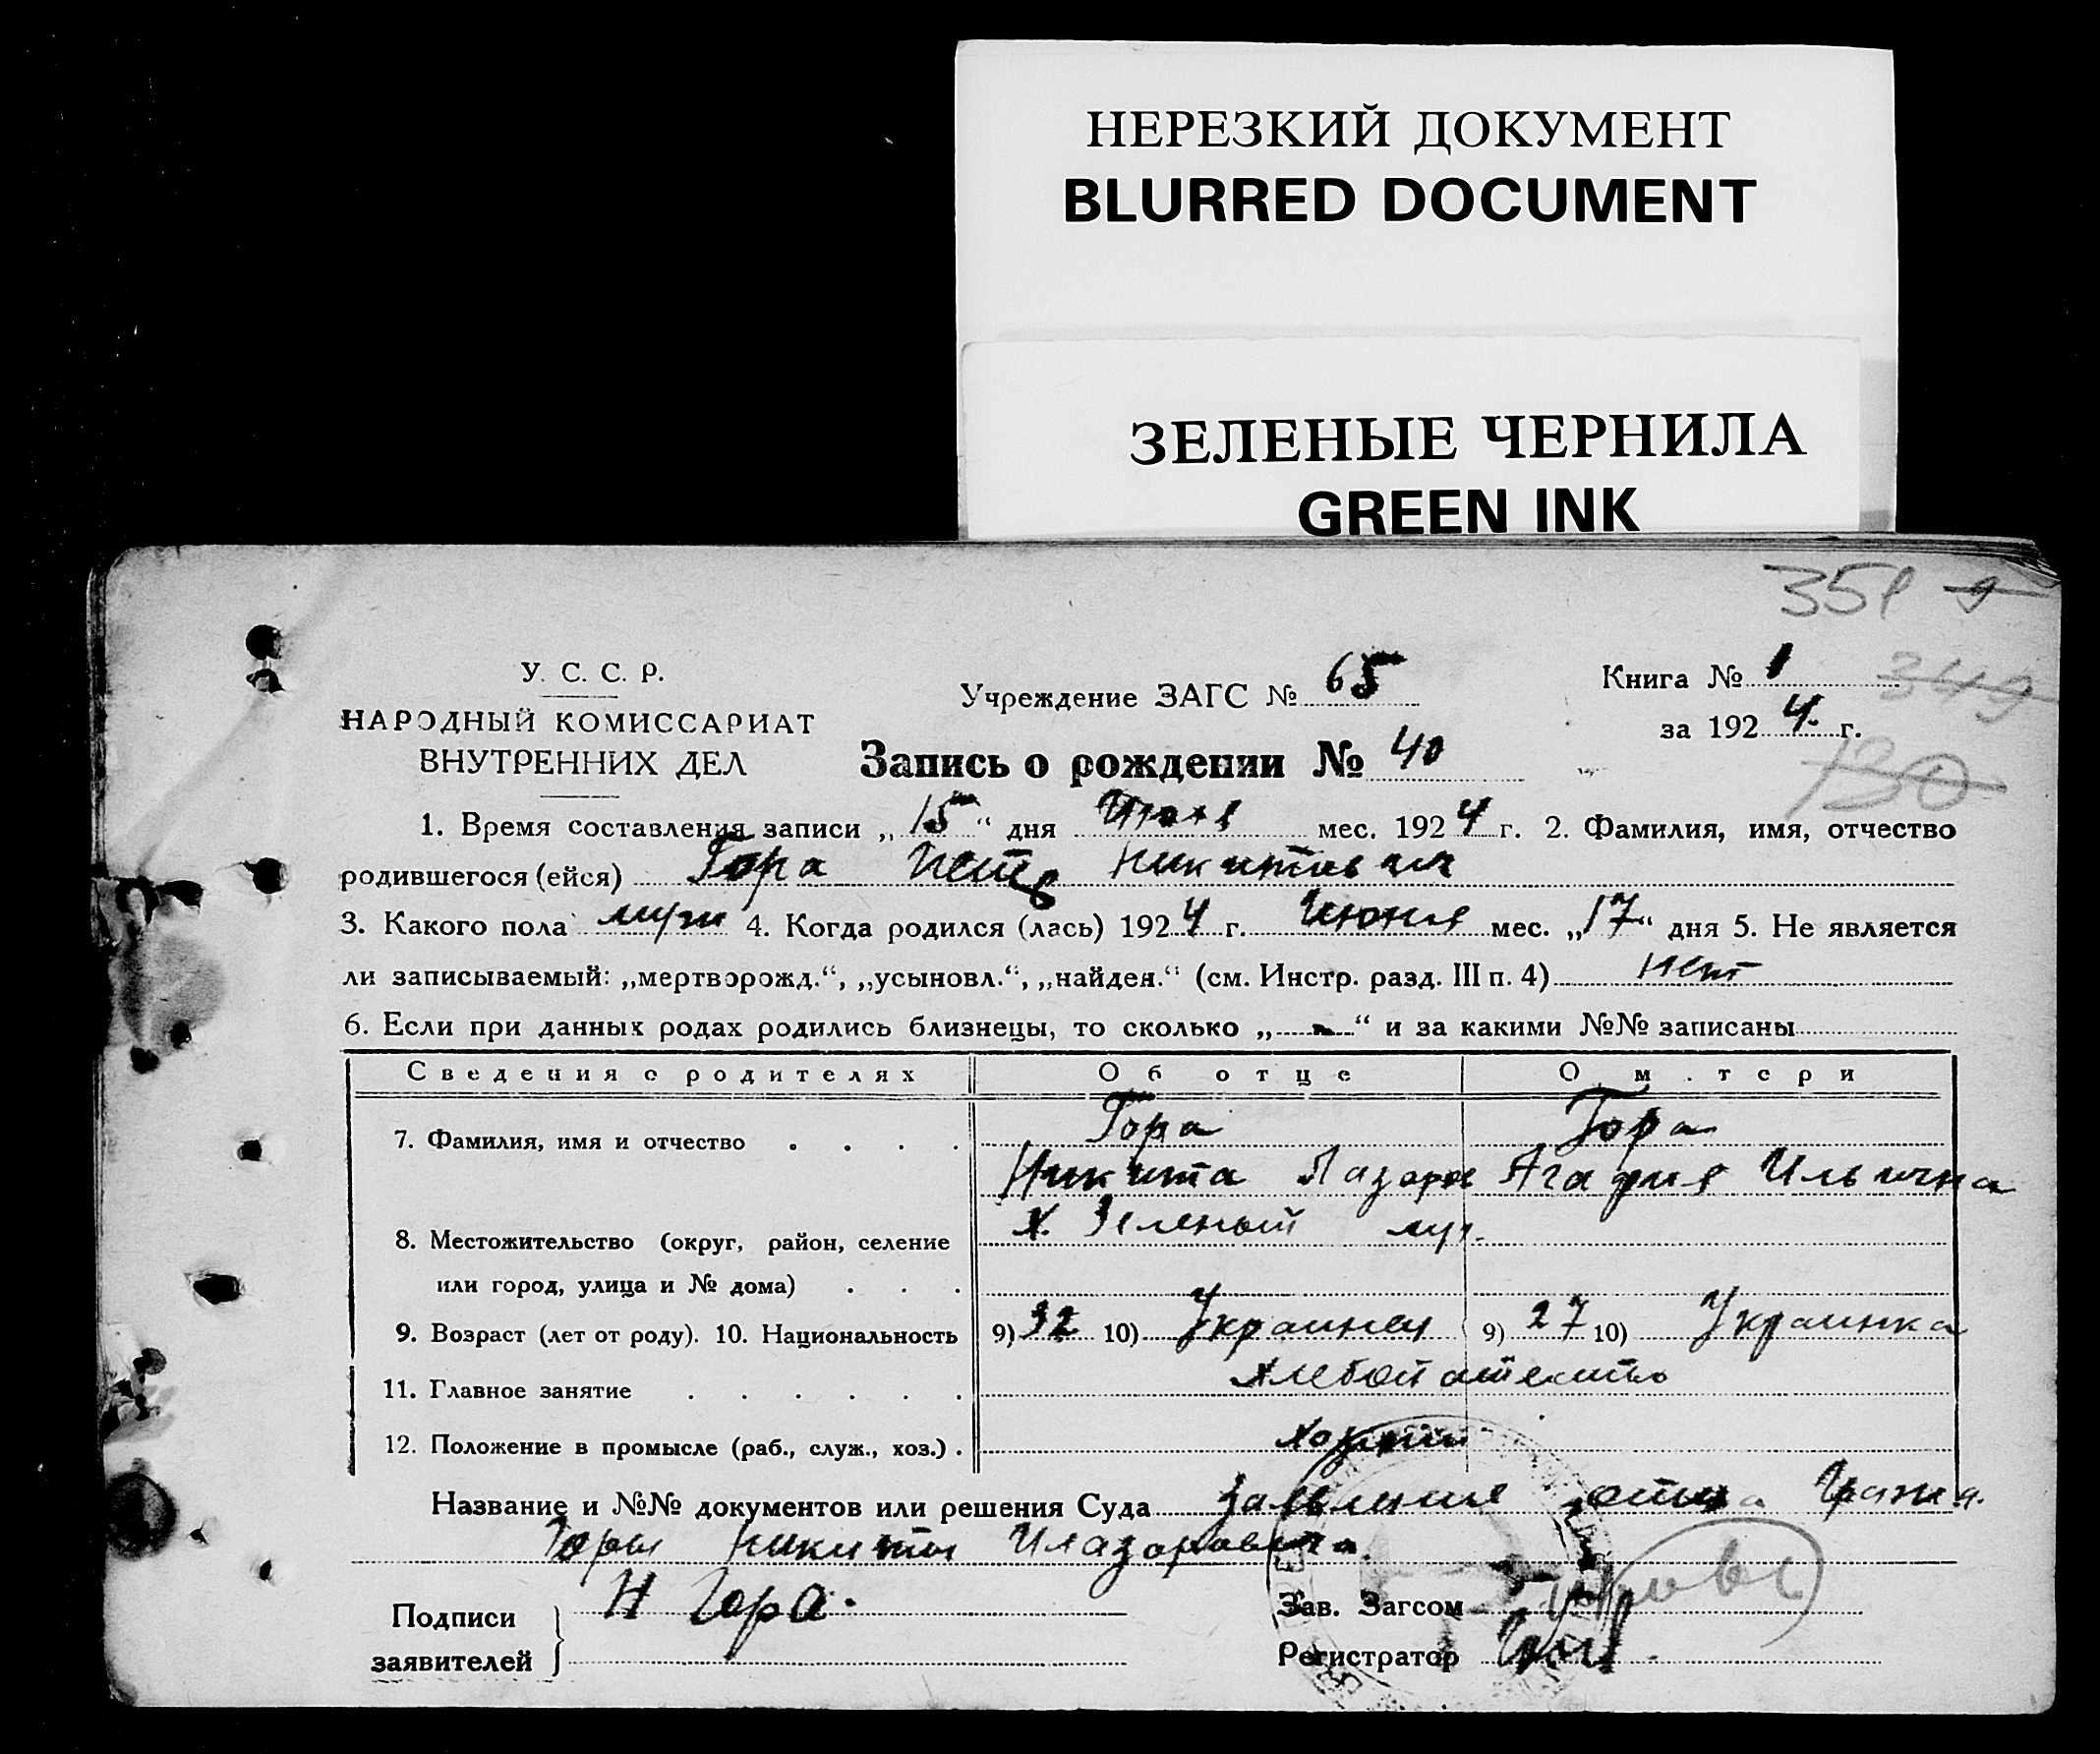 НЕРЕЗКИЙ ДОКУМЕНТ
BLURRED DOCUMENT
ЗЕЛЕНЫЕ ЧЕРНИЛА
GREEN INK
351 9
349
730
У. С. С. Р.
НАРОДНЫЙ КОМИССАРИАТ
ВНУТРЕННИХ ДЕЛ
Учреждение ЗАГС № 65
Книга № 1
за 1924 г.
Запись о рождении № 40
1. Время составления записи „15“ дня мес. 1924 г. 2. Фамилия, имя, отчество
родившегося (ейся) Гора Петр Никитович
3. Какого пола муж 4. Когда родился (лась) 1924 г. Июня мес. „17“ дня 5. Не является
ли записываемый: „мертворожд.“, „усыновл.“, „найден.“ (см. Инстр. разд. III п. 4) нет
6. Если при данных родах родились близнецы, то сколько „-“ и за какими №№ записаны
Сведения о родителях Об отце О матери
7. Фамилия, имя и отчество Гора Гора
Никита Лазаров Агафия Ильична
8. Местожительство (округ, район, селение х. Зеленый луг.
или город, улица и № дома)
9. Возраст (лет от роду). 10. Национальность 9) 32 10) Украинец 9) 27 10) Украинка
11. Главное занятие хлебопашество
12. Положение в промысле (раб., служ., хоз.)
Название и №№ документов или решения Суда Заявление отца Гражд.
Горы Никиты
Подписи
заявителей
Н Гора.
Зав. Загсом
Регистратор